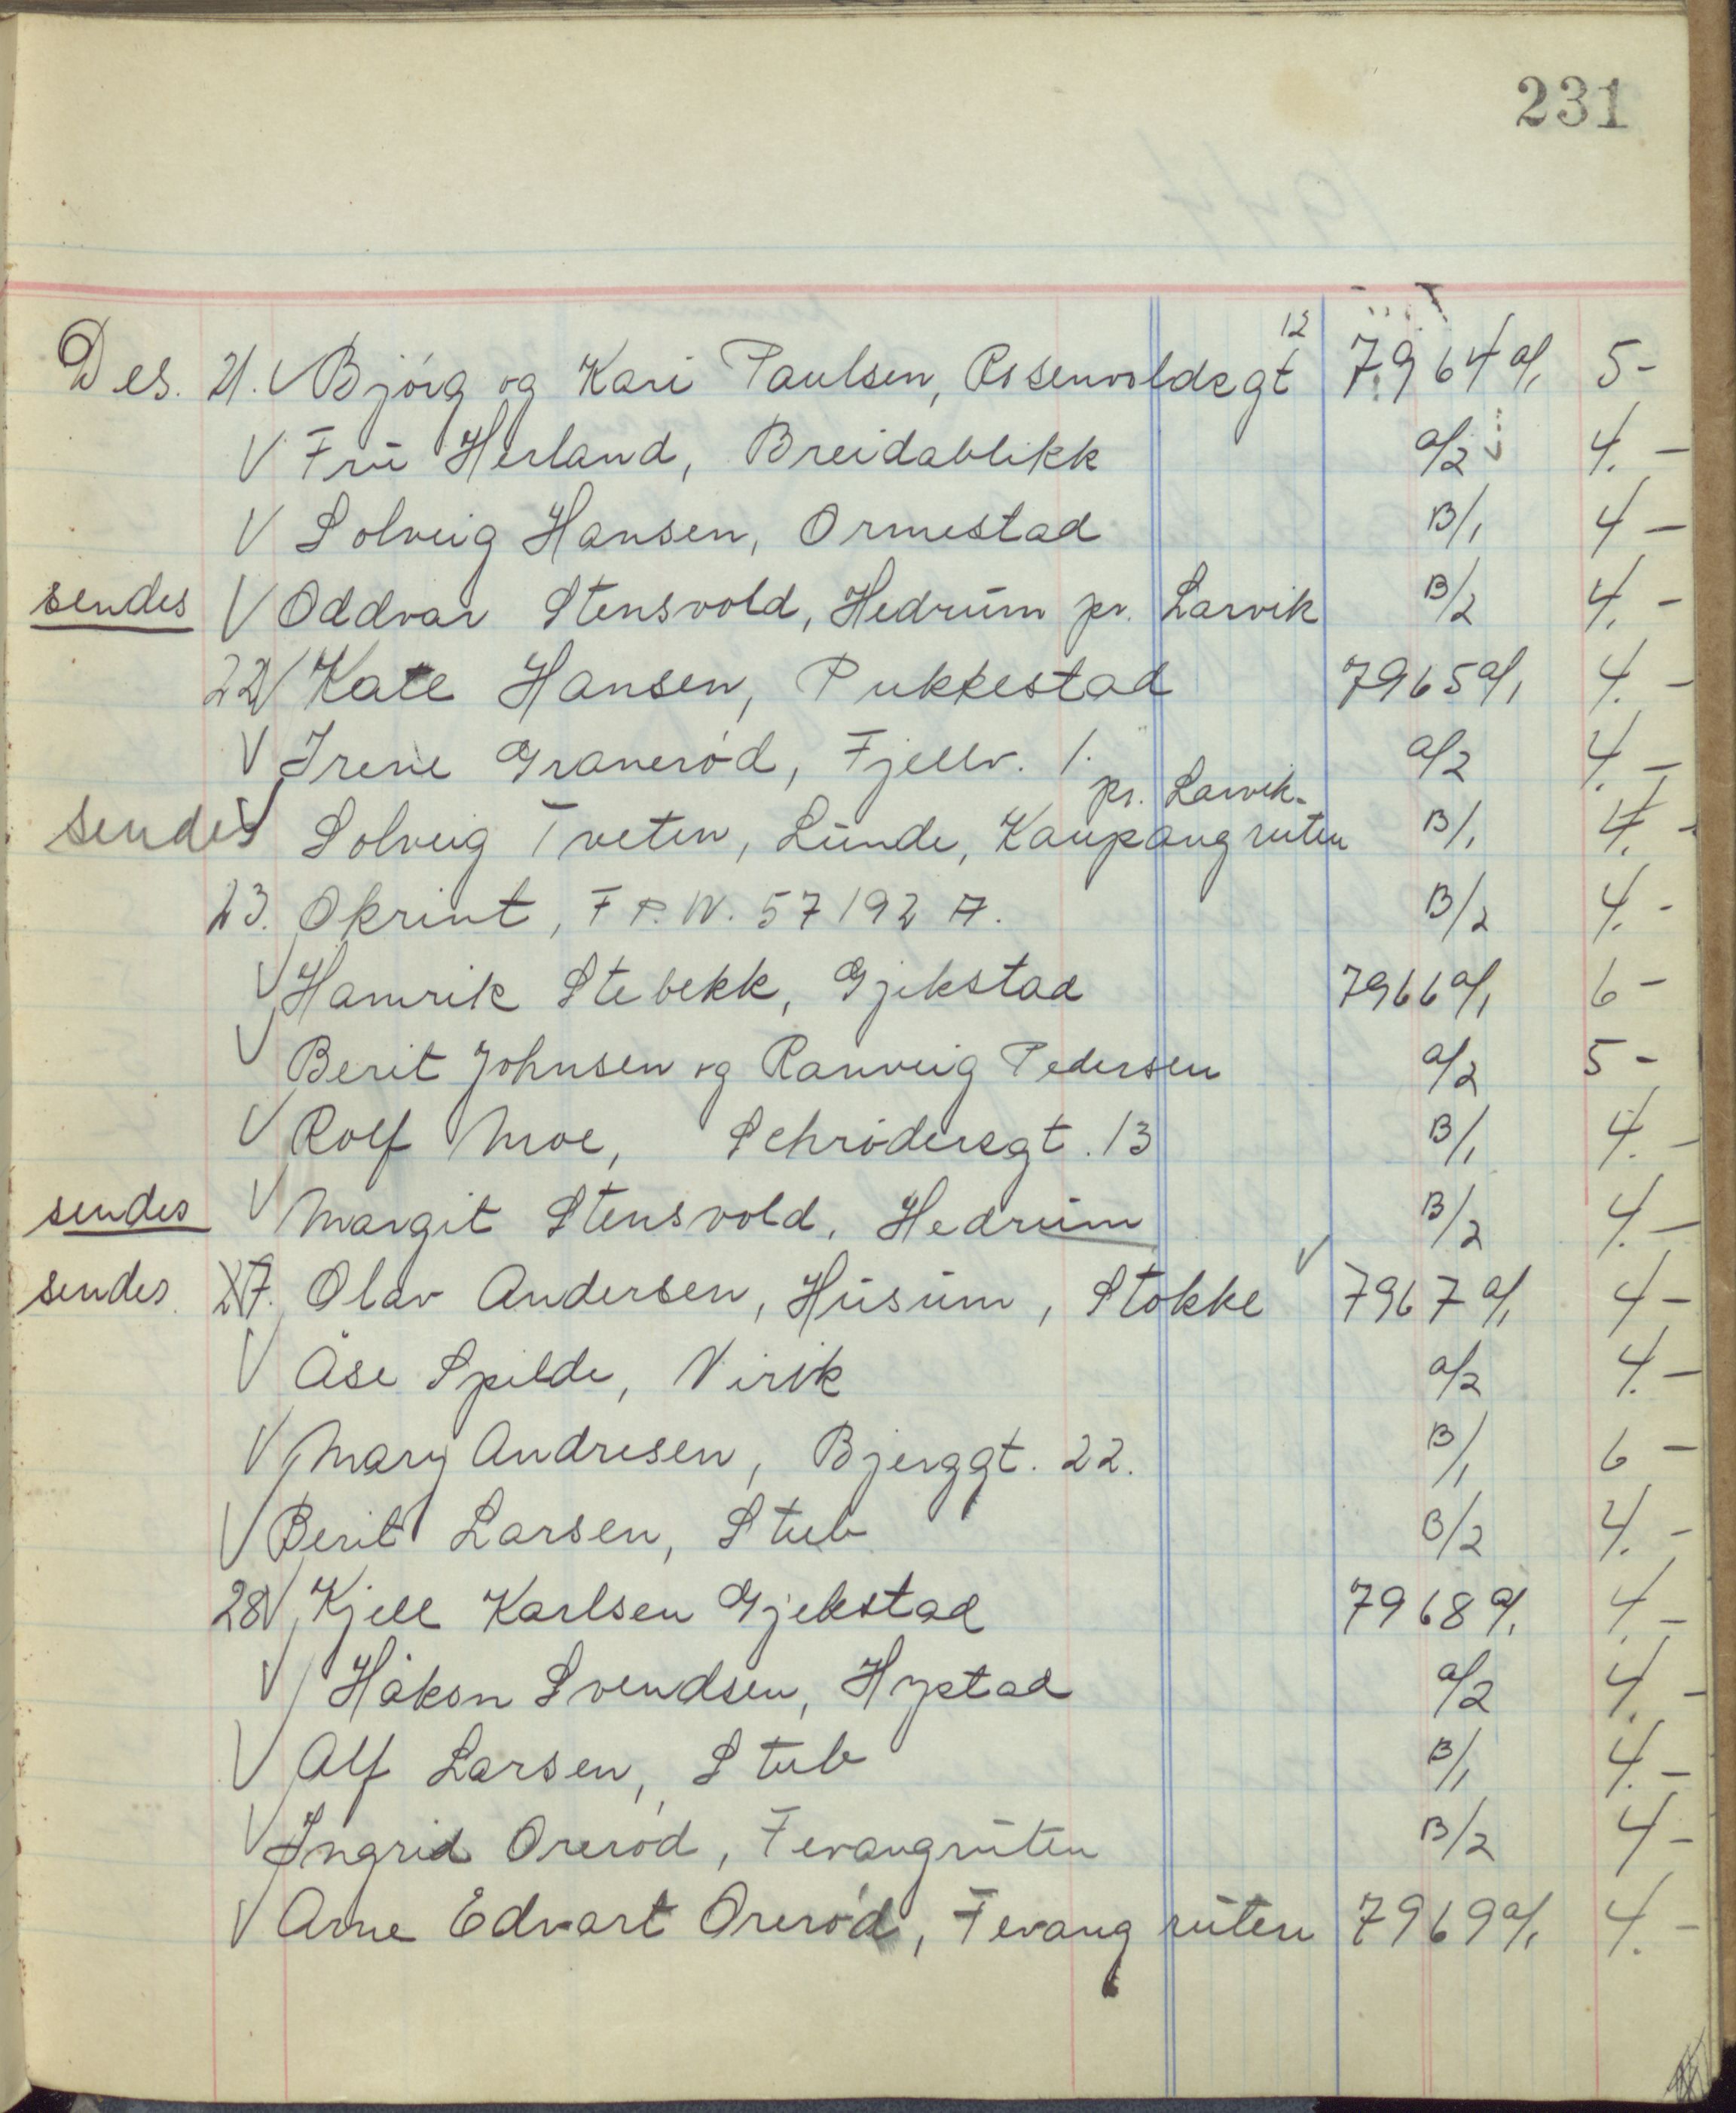 231
Des. 21. V Bjørg og Kari Paulsen, Rosenvoldsgt 12 7964 a/1 5-
V Fru Herland, Breidablikk a/2 4.-
V Solveig Hansen, Ormestad B/1 4-
sendes V Oddvar Stensvold, Hedrum pr. Larvik B/2 4.-
22 V Kate Hansen, Pukkestad 7965 a/1 4.-
V Irene Granerød, Fjellv. 1. a/2 4.-
pr. Larvik.
sendes V Solveig Tveten, Lunde, Kaupangruten B/1 4.-
23. Okrint, F.P.N. 57192 A. B/2 4.-
V Hamrik Stebekk, Gjekstad 7966 a/1 6-
V Berit Johnsen og Ranveig Pedersen a/2 5-
V Rolf Moe, Schrødersgt. 13 B/1 4.-
sendes V Margit Stensvold, Hedrum B/2 4.-
sendes. 27. Olav Andersen, Husum, Stokke V 7967 a/1 4-
V Åse Spilde, Virik a/2 4.-
V Mary Andresen, Bjerggt. 22. B/1 6-
V Berit Larsen, Stub B/2 4.-
28 V Kjell Karlsen Gjekstad 7968 a/1 4-
V Håkon Svendsen, Hystad a/2 4.-
V Alf Larsen, Stub B/1 4.-
V Ingrid Orerød, Fevangruten B/2 4-
V Arne Edvart Orerød, Fevang ruten 7969 a/1 4.-